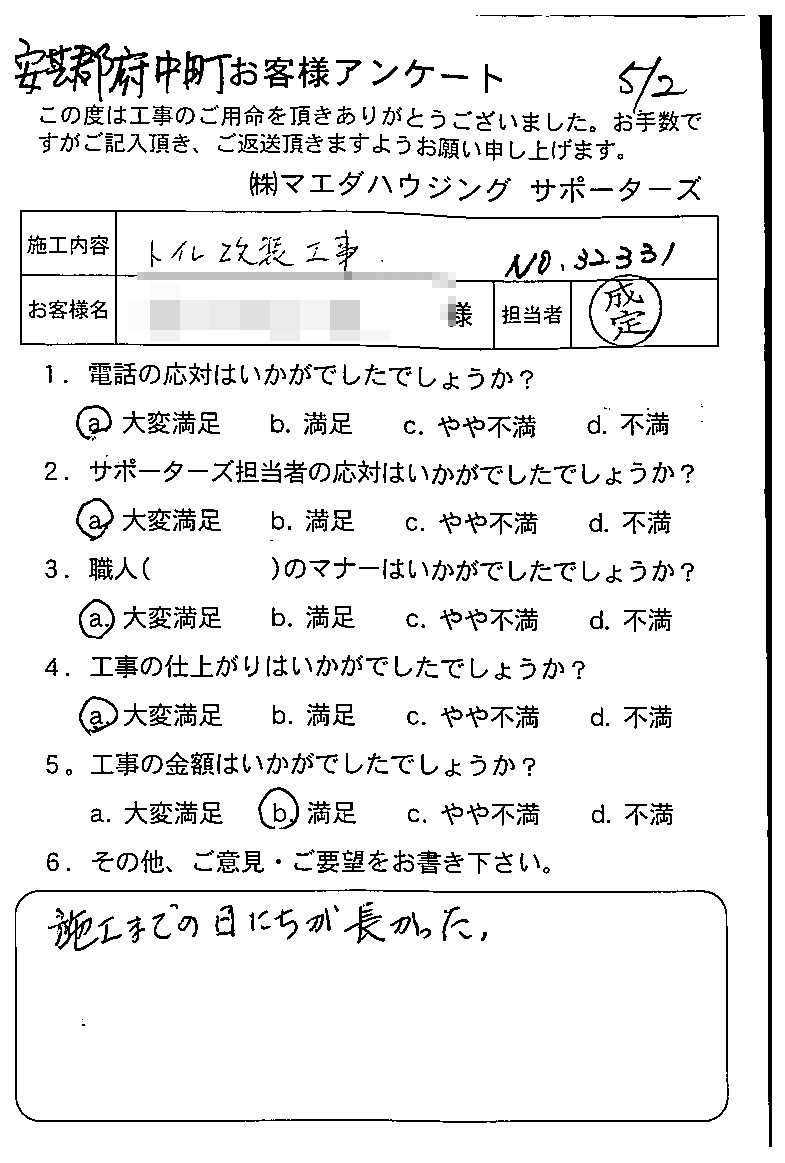 安芸郡府中町お客様アンケート 5/2
この度は工事のご用命を頂きありがとうございました。お手数で
すがご記入頂き、ご返送頂きますようお願い申し上げます。
㈱マエダハウジング サポーターズ
施工内容 トイレ改装工事. NO.32331
お客様名 様 担当者 成定
1. 電話の応対はいかがでしたでしょうか?
a. 大変満足 b. 満足 c. やや不満 d. 不満
2. サポーターズ担当者の応対はいかがでしたでしょうか?
a. 大変満足 b. 満足 c. やや不満 d. 不満
3. 職人( )のマナーはいかがでしたでしょうか?
a. 大変満足 b. 満足 c. やや不満 d. 不満
4. 工事の仕上がりはいかがでしたでしょうか?
a. 大変満足 b. 満足 c. やや不満 d. 不満
5。工事の金額はいかがでしたでしょうか?
a. 大変満足 b. 満足 c. やや不満 d. 不満
6. その他、ご意見・ご要望をお書き下さい。
施工までの日にちが長かった,